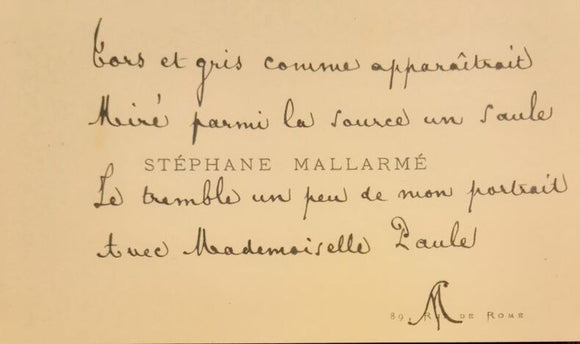 Tors et gris comme apparaîtrait
Miré parmi la source un saule
STÉPHANE MALLARMÉ
Je tremble un peu de mon portrait
Avec Mademoiselle Paule
M
89, RUE DE ROME